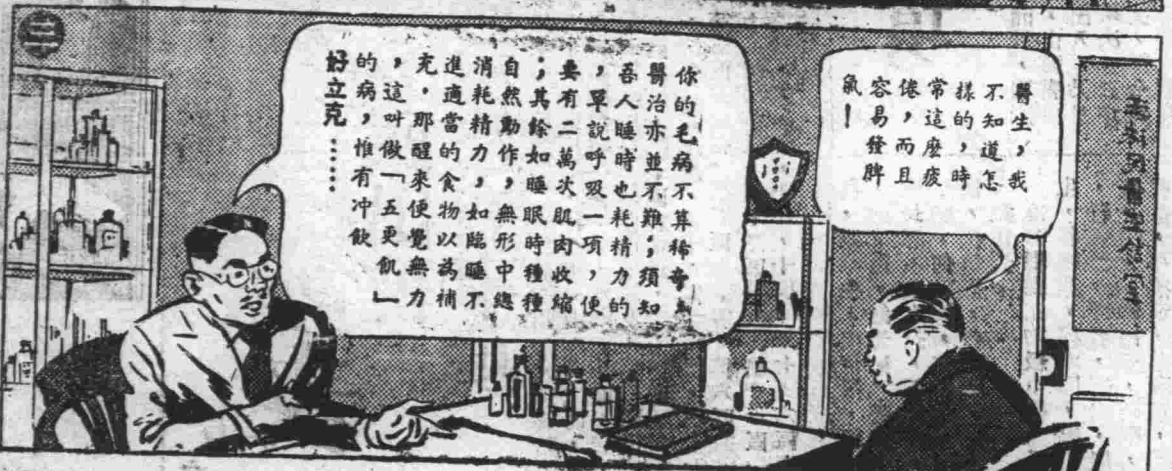 三
醫生,我
不知道怎
樣的,時
常這麼疲
倦,而且
容易發脾
氣!
你的毛病不算稀奇
醫治亦並不難;須知
吾人睡時也耗精力的
,單說呼吸一項,便
要有二萬次肌肉收縮
;其餘如睡眠時種種
自然動作,無形中總
消耗精力,如臨睡不
進適當的食物以為補
充,那醒來便覺無力
,這叫做「五更飢」
的病,惟有冲飲
好立克……